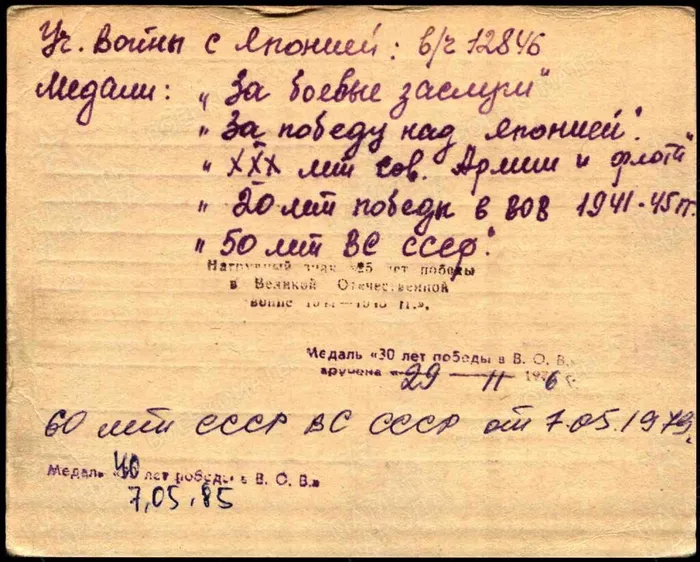 Уч. Войны с Японией: в/ч 12846
Медали: „За боевые заслуги"
„За победу над Японией".
„XXX лет Сов. Армии и флота"
„20 лет победы в ВОВ 1941-45 гг.
„50 лет ВС СССР".
Нагрудный знак «25 лет победы
в Великой Отечественной
войне 1941—1945 гг.».
Медаль «30 лет победы в В. О. В.»
вручена «29 — II 1976 г.
60 лет СССР ВС СССР от 7.05.1979,
Медаль «40 лет победы в В. О. В.»
7,05.85